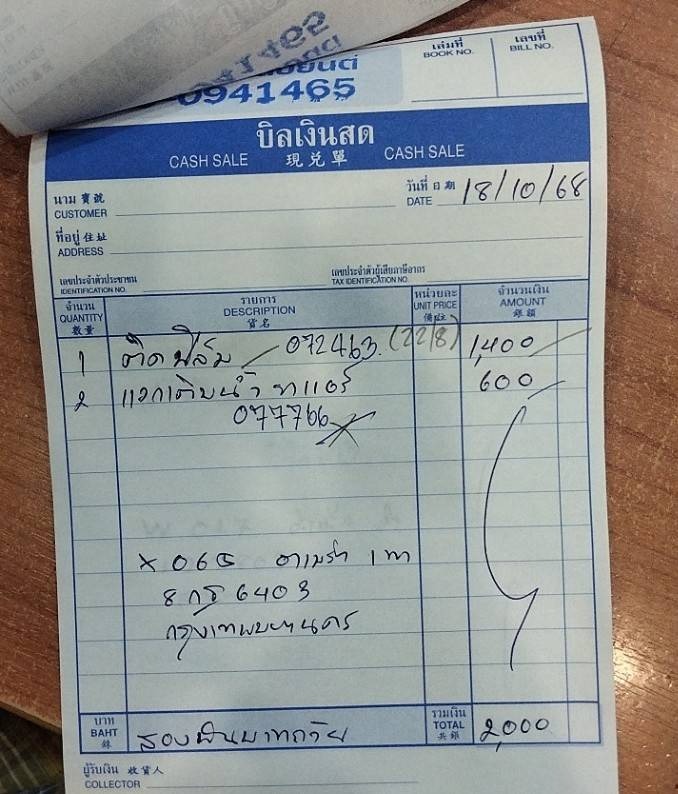 0941465
เล่มที่ BOOK NO.
เลขที่ BILL NO.
บิลเงินสด
CASH SALE 現兑單 CASH SALE
นาม 寶號 CUSTOMER
วันที่ 日期 DATE 18/10/68
ที่อยู่ 住址 ADDRESS
เลขประจำตัวประชาชน IDENTIFICATION NO.
เลขประจำตัวผู้เสียภาษีอากร TAX IDENTIFICATION NO.
จำนวน QUANTITY 數量
รายการ DESCRIPTION 貨名
หน่วยละ UNIT PRICE
จำนวนเงิน AMOUNT 銀額
1 ติดฟิล์ม 072463. (22/8) 1,400
2 600
077766
8 กธ 6403
กรุงเทพมหานคร
บาท BAHT 銖
สองพันบาทถ้วน
รวมเงิน TOTAL 共銀 2,000
ผู้รับเงิน 收貨人 COLLECTOR